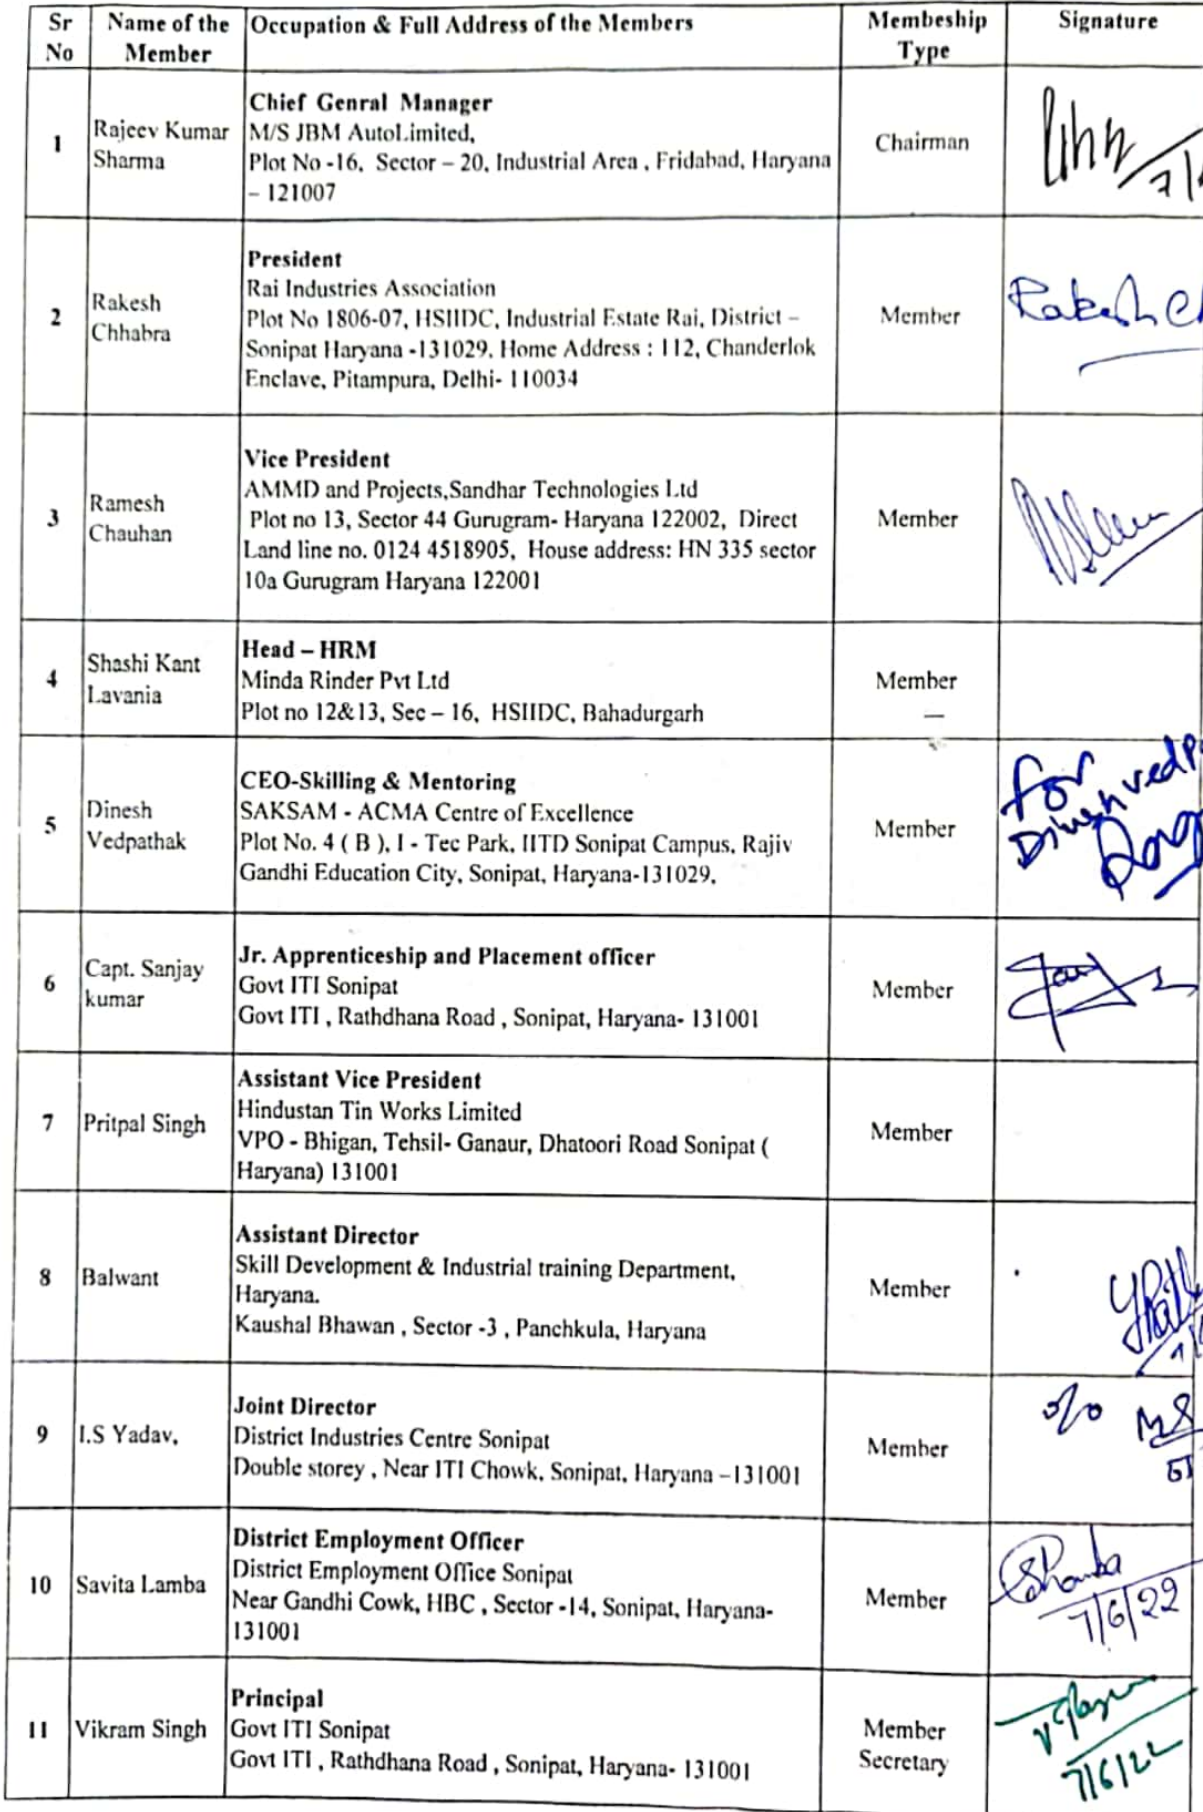 Sr No | Name of the Member | Occupation & Full Address of the Members | Membeship Type | Signature
1
Rajeev Kumar
Sharma
Chief Genral Manager
M/S JBM AutoLimited,
Plot No -16, Sector – 20, Industrial Area , Fridabad, Haryana
– 121007
Chairman
2
Rakesh
Chhabra
President
Rai Industries Association
Plot No 1806-07, HSIIDC, Industrial Estate Rai, District –
Sonipat Haryana -131029, Home Address : 112, Chanderlok
Enclave, Pitampura, Delhi- 110034
Member
Rakesh
3
Ramesh
Chauhan
Vice President
AMMD and Projects,Sandhar Technologies Ltd
Plot no 13, Sector 44 Gurugram- Haryana 122002, Direct
Land line no. 0124 4518905, House address: HN 335 sector
10a Gurugram Haryana 122001
Member
4
Shashi Kant
Lavania
Head – HRM
Minda Rinder Pvt Ltd
Plot no 12&13, Sec – 16, HSIIDC, Bahadurgarh
Member
5
Dinesh
Vedpathak
CEO-Skilling & Mentoring
SAKSAM - ACMA Centre of Excellence
Plot No. 4 ( B ), I - Tec Park, IITD Sonipat Campus, Rajiv
Gandhi Education City, Sonipat, Haryana-131029,
Member
for
6
Capt. Sanjay
kumar
Jr. Apprenticeship and Placement officer
Govt ITI Sonipat
Govt ITI , Rathdhana Road , Sonipat, Haryana- 131001
Member
7
Pritpal Singh
Assistant Vice President
Hindustan Tin Works Limited
VPO - Bhigan, Tehsil- Ganaur, Dhatoori Road Sonipat (
Haryana) 131001
Member
8
Balwant
Assistant Director
Skill Development & Industrial training Department,
Haryana.
Kaushal Bhawan , Sector -3 , Panchkula, Haryana
Member
9
I.S Yadav,
Joint Director
District Industries Centre Sonipat
Double storey , Near ITI Chowk, Sonipat, Haryana –131001
Member
10
Savita Lamba
District Employment Officer
District Employment Office Sonipat
Near Gandhi Cowk, HBC , Sector -14, Sonipat, Haryana-
131001
Member
7/6/22
11
Vikram Singh
Principal
Govt ITI Sonipat
Govt ITI , Rathdhana Road , Sonipat, Haryana- 131001
Member
Secretary
7/6/22